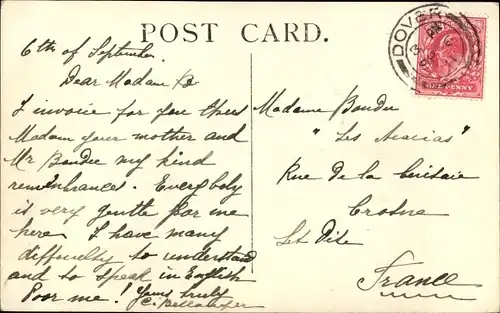 POST CARD.
6th of September
Dear Madam B
I invoice for you thus
Madam your mother and
Mr Bondu my kind
remembrances. Everybody
is very gentle for me
here. I have many
difficulty to understand
and to speak in English
Poor me! Yours truly
Madame Bondu
"Les Acacias"
Rue de la
France
DOVER
ONE PENNY